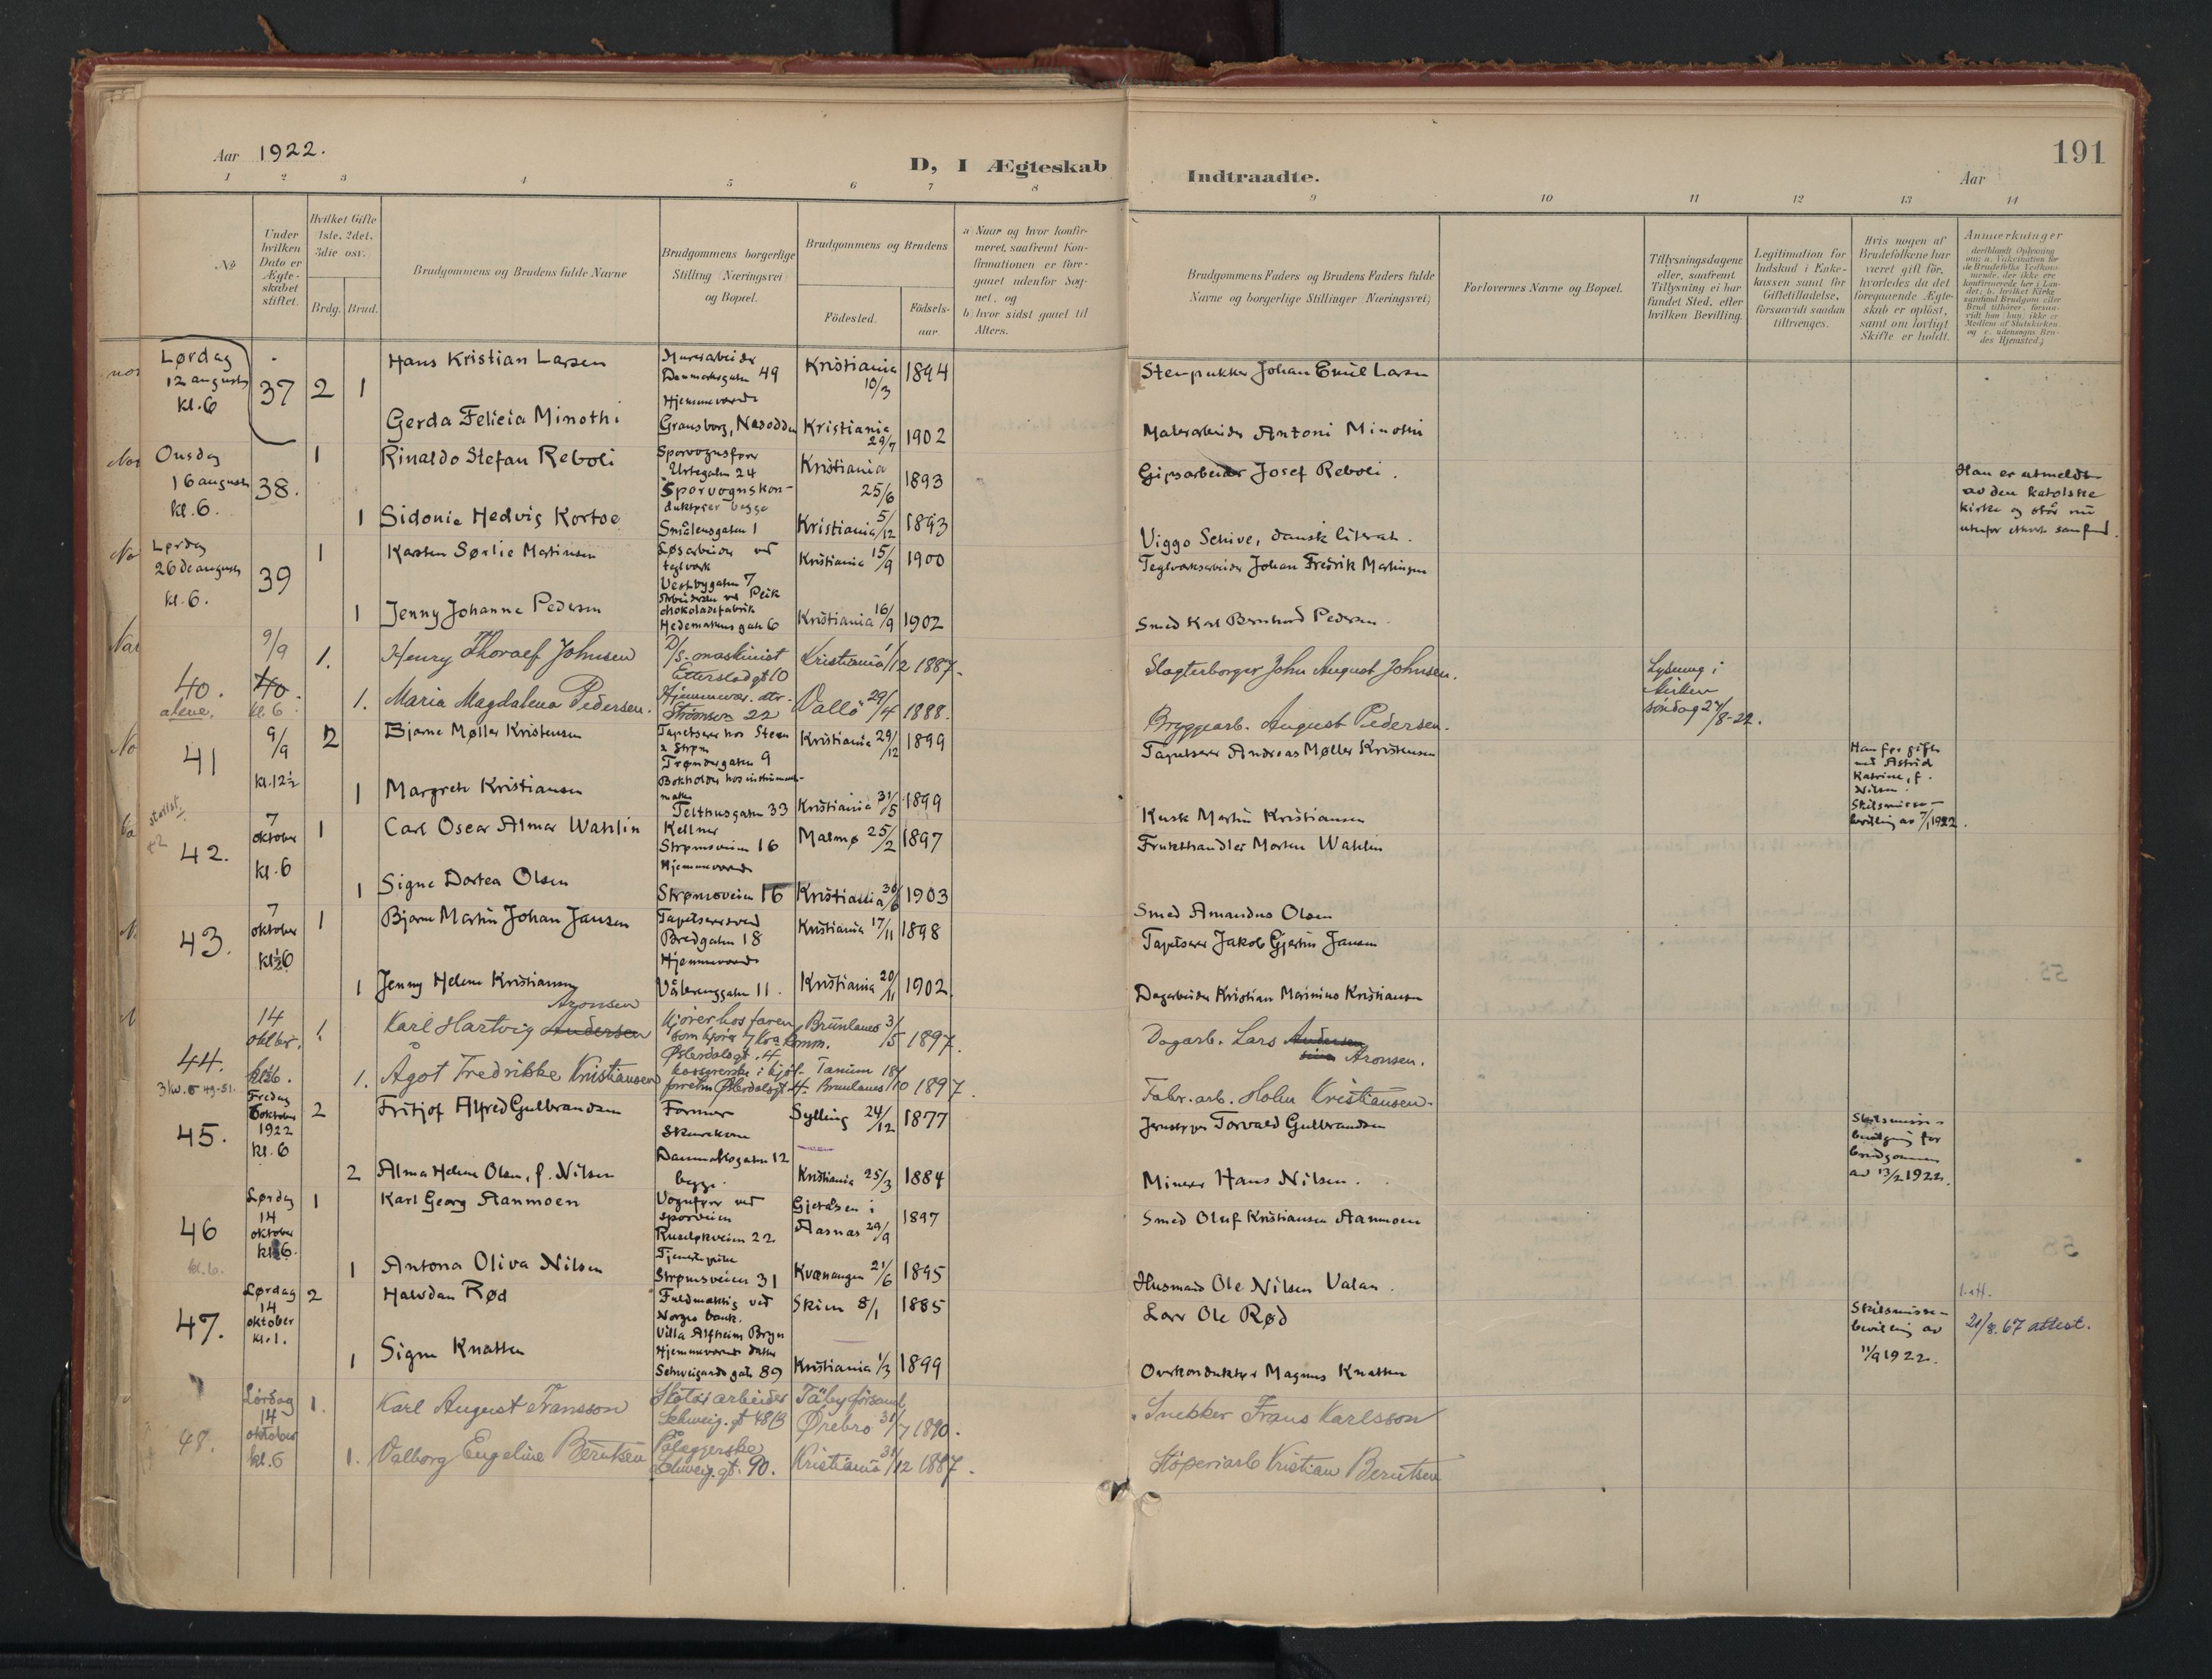 Aar 1922.
D, I Ægteskab
Indtraadte.
191
Aar
1 2 3 4 5 6 7 8 9 10 11 12 13 14
No
Under hvilken Dato er Ægteskabet stiftet.
Hvilket Gifte (1ste, 2det, 3die osv.
Brdg. Brud.
Brudgommens og Brudens fulde Navne
Brudgommens borgerlige Stilling (Næringsvei) og Bopæl.
Brudgommens og Brudens
Fødested.
Fødsels-aar.
a) Naar og hvor konfir-
meret, saafremt Kon-
firmationen er fore-
gaaet udenfor Sog-
net, og
b) hvor sidst gaaet til
Alters.
Brudgommens Faders og Brudens Faders fulde
Navne og borgerlige Stillinger (Næringsvei)
Forlovernes Navne og Bopæl.
Tillysningsdagene
eller, saafremt
Tillysning ei har
fundet Sted, efter
hvilken Bevilling.
Legitimation for
Indskud i Enke-
kassen samt for
Giftetilladelse,
forsaavidt saadan
tiltrænges.
Hvis nogen af
Brudefolkene har
været gift før,
hvorledes da det
foregaaende Ægte-
skab er opløst,
samt om lovligt
Skifte er holdt.
Anmerkninger
Lørdag 12 august kl. 6 37 2 1
Hans Kristian Larsen Murerarbeider Danmarksgaten 49 Kristiania 10/3 1894 Stenpukker Johan Emil Larsen
Gerda Felicia Minothi Hjemmeværende Gransborg, Nesodden Kristiania 29/7 1902 Malerarbeider Antoni Minothi
Onsdag 16 august kl. 6. 38. 1
Rinaldo Stefan Reboli Sporvognsfører Urtegaten 24 Kristiania 25/6 1893 Gipsarbeider Josef Reboli.
Han er utmeldt
av den katolske
kirke og står nu
utenfor ethvert samfund.
1 Sidonie Hedvig Kortoe Sporvognskon-
duktører begge
Smålensgaten 1 Kristiania 5/12 1893 Viggo Schive, dansk literat.
Lørdag 26de august kl. 6. 39 1
Karsten Sørlie Martinsen Løsarbeider ved teglverk Vestbygaten 7 Kristiania 15/9 1900 Teglverksarbeider Johan Fredrik Martinsen
1 Jenny Johanne Pedersen Arbeiderske ved Peik chokoladefabrik Hedemarkens gate 6 Kristiania 16/9 1902 Smed Karl Bernhard Pedersen.
40. alene. 9/9 40. kl. 6 1.
Henry Thoralf Johnsen D/S. maskinist Etterstadgt 10 Kristiania 1/12 1887. Slagterborger John August Johnsen.
Lysning i
kirken
søndag 27/8-22.
1. Maria Magdalena Pedersen. Hjemmevær. dtr. Strømsvn 22 Vallö 29/4 1888. Bryggearb. August Pedersen.
41 9/9 kl. 12½ 2
Bjarne Møller Kristensen Tapetserer hos Steen & Strøm Trøndergaten 9 Kristiania 29/12 1899 Tapetserer Andreas Møller Kristensen
Han før gift
med Astrid
Katrine, f.
Nilsen.
Skilsmisse-
bevilling av 7/1 1922.
1 Margrete Kristiansen Bokholder hos instrument-
maker
Telthusgaten 33 Kristiania 31/5 1899 Kusk Martin Kristiansen
42. 7 oktober kl. 6 1
Carl Oscar Almar Wahlin Kellner Strømsveien 16 Malmø 25/2 1897 Frukthandler Morten Wahlin
1 Signe Dortea Olsen Hjemmeværende Strømsveien 16 Kristiania 30/6 1903 Smed Amandus Olsen
43. 7 oktober kl ½6 1
Bjarne Martin Johan Jansen Tapetserersvend Bredgaten 18 Kristiania 17/11 1898 Tapetserer Jakob Gjertin Jansen
1 Jenny Helene Kristiansen Hjemmeværende Vålerenggaten 11. Kristiania 20/11 1902. Dagarbeider Kristian Marinius Kristiansen
44. 14 oktbr. kl. 6. 1.
Karl Hartvig Andersen Aronsen Kjører hos faren som kjører f. Kra komm. Østerdalsgt. 4 Brunlanes 3/5 1897. Dagarb. Lars Andersen Aronsen.
3 kw. 49-51.
1. Ågot Fredrikke Kristiansen kassererske i kjøt-
forretn Østerdalsgt 4. Tanum Brunlanes 18/10 1897. Fabr. arb. Holm Kristiansen.
45. Fredag 6 oktober 1922 kl. 6 2
Fritjof Alfred Gulbrandsen Former Sylling 24/12 1877 Jernstøper Torvald Gulbrandsen
Skilsmisse-
bevilgning for
brudgommen
av 13/2 1922.
2 Alma Helene Olsen, f. Nilsen Skurekone Danmarksgaten 12 begge. Kristiania 25/3 1884 Minerer Hans Nilsen.
46 Lørdag 14 oktober kl. 6. 1
kl. 6.
Karl Georg Aanmoen Vognfører ved sporveien Ruseløkveien 22 Gjeråsen i Aasnas 29/9 1897 Smed Oluf Kristiansen Aanmoen
1 Antona Oliva Nilsen Tjenestepike Strømsveien 31 Kvænangen 21/6 1895 Husmand Ole Nilsen Valan.
47. Lørdag 14 oktober kl. 1. 2
Halvdan Rød Fuldmæktig ved Norges bank. Villa Alfheim Bryn Skien 8/1 1885 Lærer Ole Rød
Skilsmisse-
bevilling av
11/9 1922.
1. att.
21/8.67 attest.
1 Signe Knatten Hjemmeværende datter Schweigaards gate 89 Kristiania 1/3 1899 Overkonduktør Magnus Knatten
48. Lørdag 14 oktober kl. 6 1.
Karl August Fransson Skotøiarbeider Schweig. gt 48 B Täby församl, Örebro 31/7 1890. Snekker Frans Karlsson
1. Valborg Engeline Berntsen Pålæggerske Schweig. gt. 90. Kristiania 31/12 1887. Støperiarb Kristian Berntsen